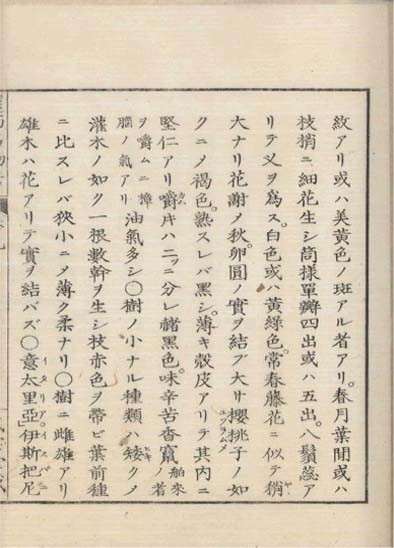 紋アリ或ハ美黄色ノ斑アル者アリ。春月葉間或ハ
枝梢ニ細花生シ筒様單瓣四出或ハ五出。八鬚蕊ア
リテ叉ヲ爲ス。白色或ハ黄綠色。常春藤花ニ似テ稍
大ナリ花謝ノ秋。卵圓ノ實ヲ結ブ大サ櫻桃子ノ如
クニノ褐色。熟スレバ黑シ。薄キ殻皮アリテ其内ニ
堅仁アリ嚼片ハ二ツニ分レ赭黑色。味辛苦香竄舶來ノ者
ヲ嚼ムニ樟腦ノ氣アリ油氣多シ〇樹ノ小ナル種類ハ矮クメ
灌木ノ如ク一根數幹ヲ生シ枝赤色ヲ帶ビ葉前種
ニ比スレバ狹小ニメ薄ク柔ナリ〇樹ニ雌雄アリ
雄木ハ花アリテ實ヲ結バズ〇意太里亞伊斯把尼